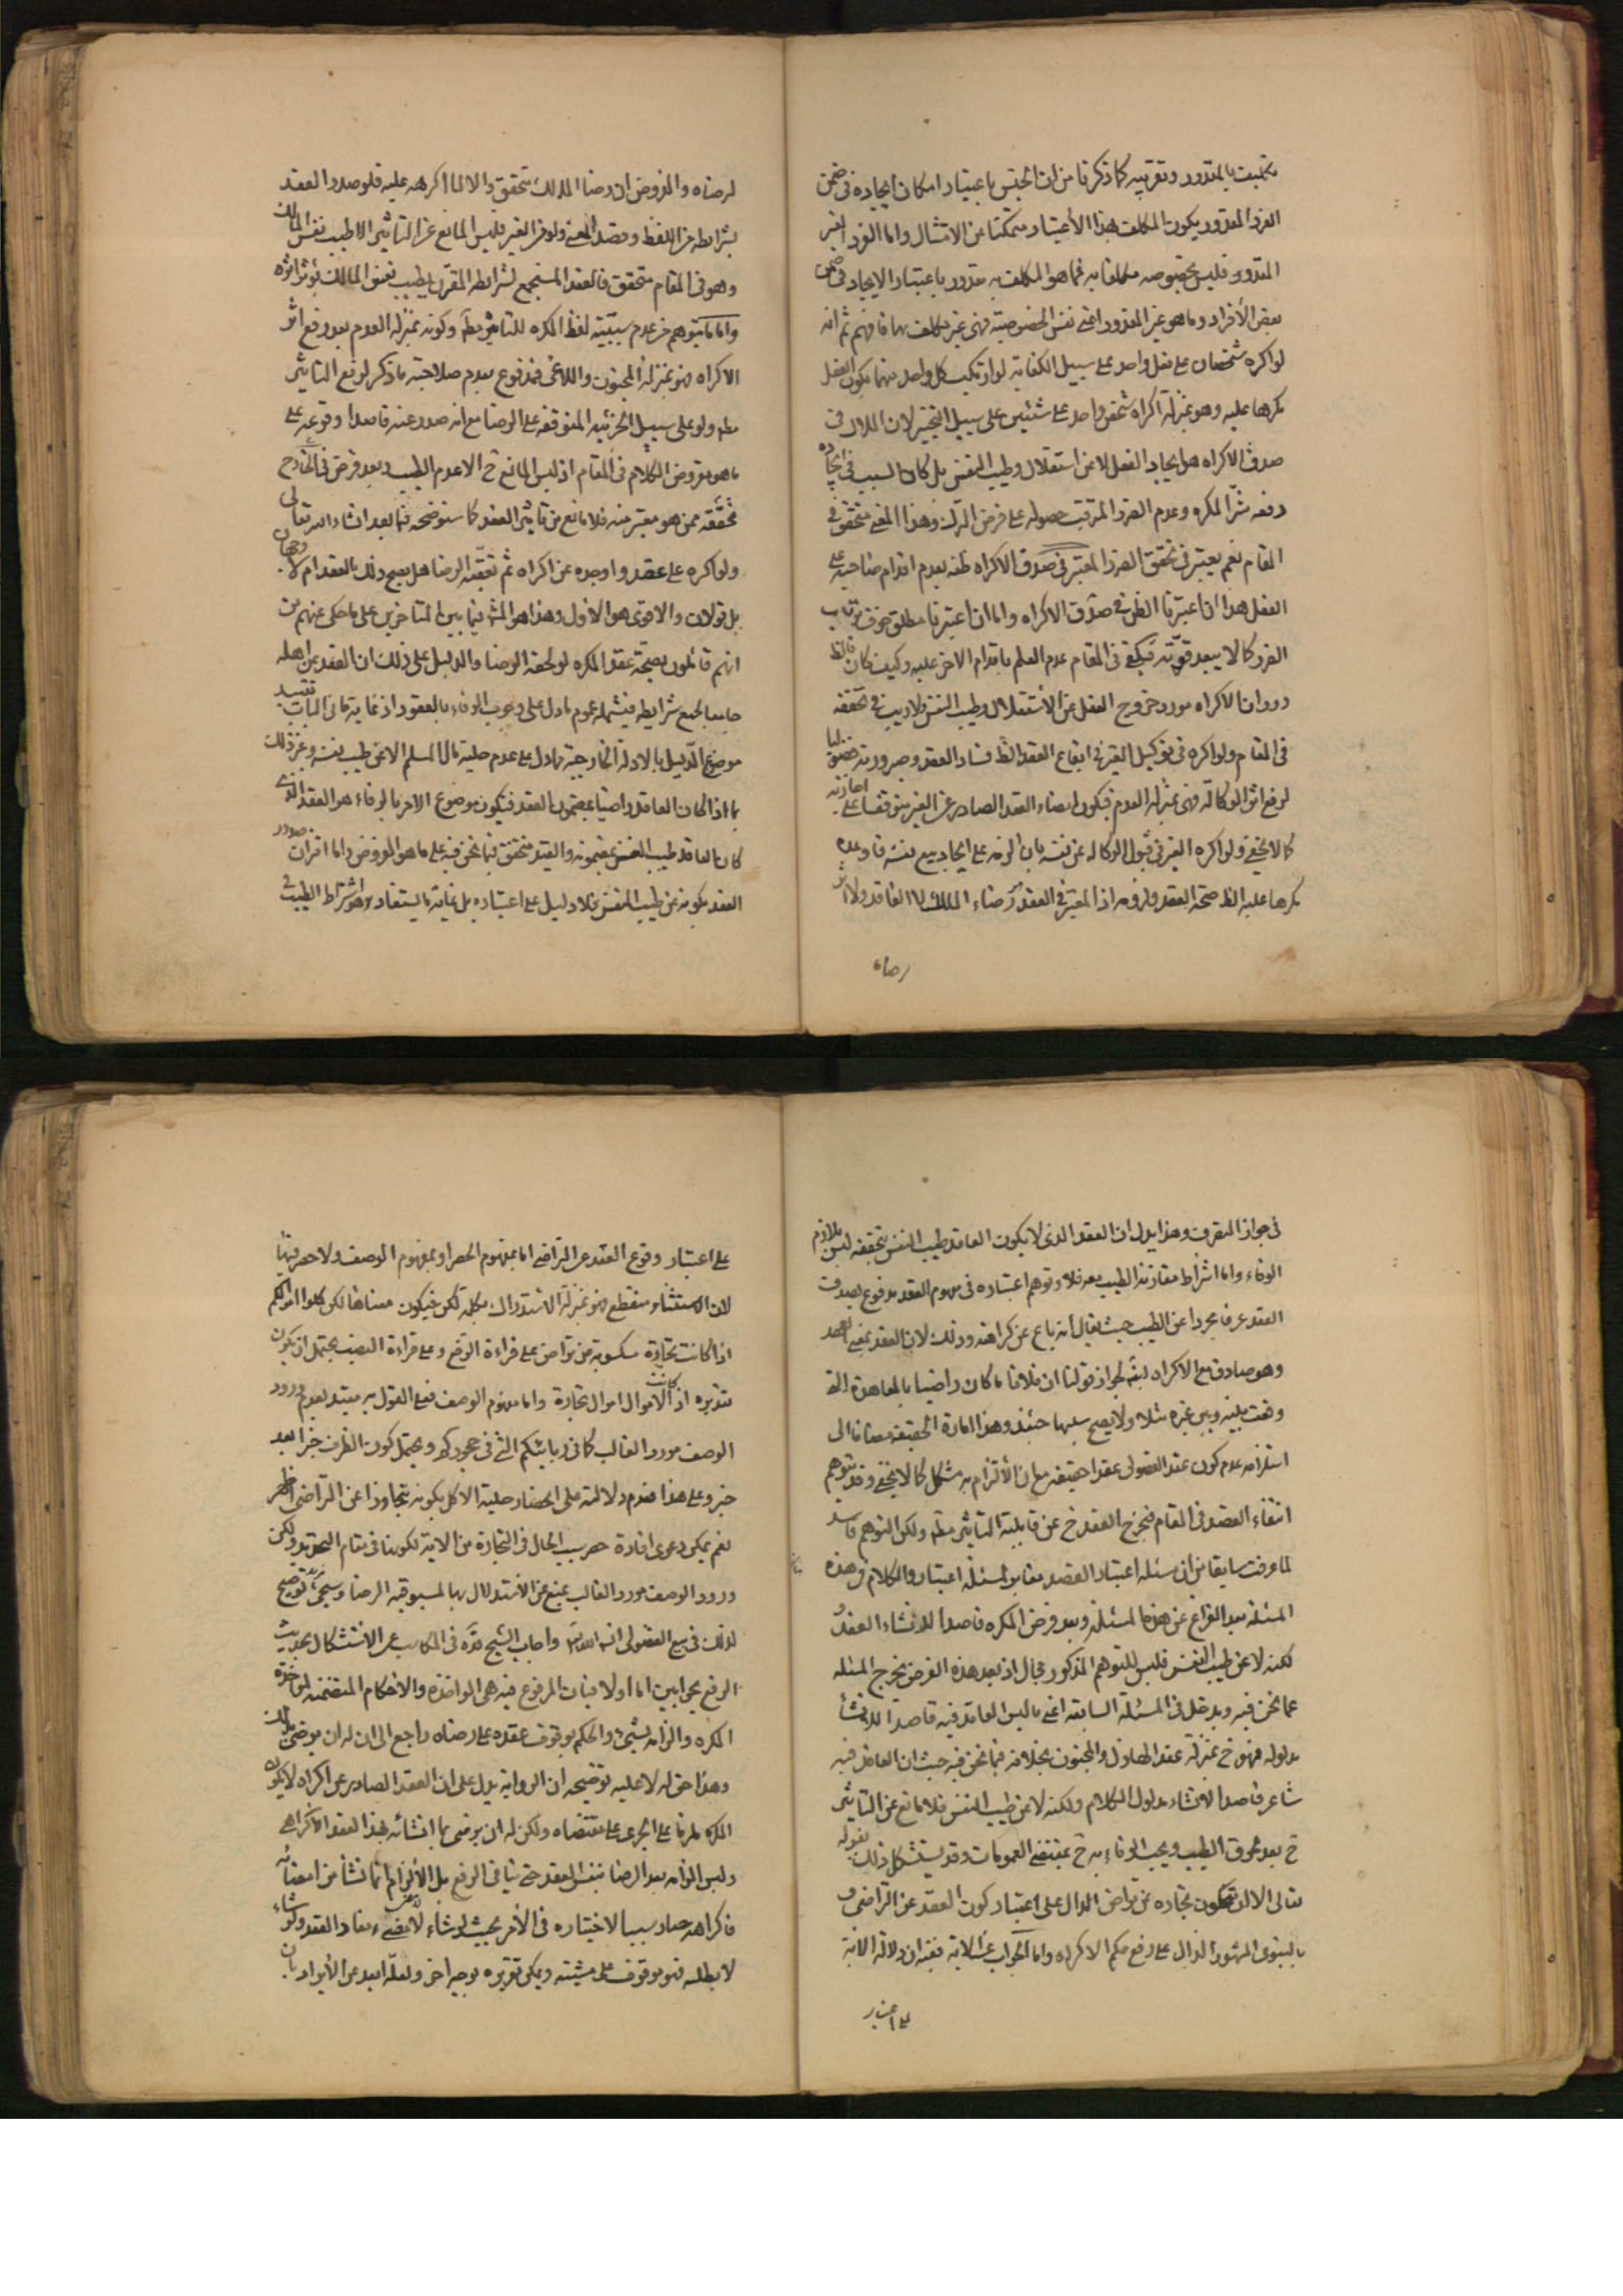 بالمقدور وتقريبه كما ذكرنا من ان الجنس باعتبار امكان ايجاده في ضمن
الفرد المقدور يكون المكلف بهذا الأعتبار متمكنا من الامتثال واما الفرد الغير
المقدور فليس بخصوصه مكلفا به فما هو المكلف به مقدور باعتبار الايجاد في ضمن
بعض الأفراد وما هو غير المقدور اعني نفس الخصوصية فهي غير مكلف بها فافهم ثم انه
لو اكره شخصان على فعل واحد على سبيل الكفاية لو ارتكب كل واحد منهما يكون الفعل
مكرها عليه وهو بمنزلة اكراه شخص واحد على شيئين على سبيل التخيير لان الملاك في
صدق الاكراه هو ايجاد الفعل لا عن استقلال وطيب النفس بل كان السبب في ايجاده
دفعه شر المكره وعدم الضرر المترقب حصوله على فرض الترك وهذا المعنى متحقق في
المقام نعم يعتبر في تحقق الضرر المعتبر في صدق الاكراه ظنه بعدم اقدام صاحبه على
الفعل هذا ان اعتبرنا الظن في صدق الاكراه واما ان اعتبرنا مطلق خوف ترتب
الضرر كما لا يبعد قوته فيكفي في المقام عدم العلم باقدام الاخر عليه وكيف كان فالظ
دوران الاكراه مورد خروج الفعل عن الأستقلال وطيب النفس فلا ريب في تحققه
في المقام ولو اكره في توكيل الغير في ايقاع العقد الظ فساد العقد وصيرورته فضوليا
لرفع اثر الوكالة فهي بمنزلة العدم فيكون امضاء العقد الصادر عن الغير متوقفا على اجازته
كما لا يخفى ولو اكره الغير في قبول الوكالة عن نفسه بان الزمه على ايجاد بيع نفسه فاوجده
مكرها عليه الظ صحة العقد ولزومه اذ المعتبر في العقد رضاء المالك لا العاقد ولا اثر
رضاه
لرضاه والمفروض ان رضا المالك متحقق والا لما اكرهه عليه فلو صدر العقد
بشرائطه من اللفظ وقصد المعنى ولو من الغير فليس المانع عن التاثير الا طيب نفس المالك
وهو في المقام متحقق فالعقد المستجمع لشرائطه المقرون بطيب نفس المالك يؤثر اثره
واما ما يتوهم من عدم سببية لفظ المكره للتاثير مطم وكونه بمنزلة العدم بعد رفع اثر
الاكراه فهو بمنزلة المجنون واللاغي فمدفوع بعدم صلاحية ما ذكر لرفع التاثير
مطم ولو على سبيل الجزئية المتوقفة على الرضا مع انه صدر عنه قاصدا وقوعه على
ما هو مفروض الكلام في المقام اذ ليس المانع ح الا عدم الطيب وبعد فرض في الخارج
تحققه ممن هو معتبر منه فلا مانع من تاثير العقد كما سنوضحه فيما بعد انشاء الله تعالى
ولو اكره على عقد واوجده عن اكراه ثم تعقبه الرضا هل يصح ذلك العقد ام لا وجهان
بل قولان والاقوى هو الأول وهذا هو المش فيما بين المتاخرين على ما حكى عنهم من
انهم قائلون بصحة عقد المكره لو لحقه الرضا والدليل على ذلك ان العقد من اهله
جامعا لجميع شرايطه فيشمله عموم ما دل على وجوب الوفاء بالعقود اذ غاية ما في الباب تقييد
موضوع الدليل بالادلة الخارجية مما دل على عدم حلية مال المسلم الا عن طيب نفسه وغير ذلك
بما اذا كان العاقد راضيا بمضمون العقد فيكون موضوع الامر بالوفاء هو العقد الذي
كان العاقد طيب النفس بمضمونه والقيد متحقق فيما نحن فيه على ما هو المفروض واما اقتران صدور
العقد بكونه عن طيب النفس فلا دليل على اعتباره بل غاية ما يستفاد هو اشتراط الطيب
في جواز التصرف وهذا يدل ان العقد الذي لا يكون العاقد طيب النفس بتحققه ليس بلازم
الوفاء واما اشتراط مقارنة الطيب معه فلا وتوهم اعتباره في مفهوم العقد مدفوع بصدق
العقد عرفا مجردا عن الطيب حيث يقال انه باع عن كراهته وذلك لان العقد بمعنى العهد
وهو صادق مع الاكراه لجواز قولنا ان فلانا ما كان راضيا بالمعاهدة التي
وقعت بينه وبين غيره مثلا ولا يصح سلبها حينئذ وهذا امارة الحقيقة مضافا الى
استلزامه عدم كون عقد الفضولى عقدا حقيقة مع ان الألتزام به مشكل كما لا يخفى وقد يتوهم
انتفاء القصد في المقام فيخرج العقد ح عن قابلية التاثير مطم ولكن التوهم فاسد
لما عرفت سابقا من ان مسئلة اعتبار القصد مغاير لمسئلة اعتبار والكلام في هذه
المسئلة بعد الفراغ عن هذه المسئلة وبعد فرض المكره قاصدا للانشاء العقد و
لكنه لا عن طيب النفس فليس للتوهم المذكور مجال اذ بعد هذه الفرض يخرج المسئلة
عما نحن فيه ويدخل في المسئلة السابقة اعني ما ليس العاقد فيه قاصدا للانشاء
مدلوله فهو ح بمنزلة عقد الهازل والمجنون بخلافه فيما نحن فيه حيث ان العاقد فيه
شاعر قاصدا لانشاء مدلول الكلام ولكنه لا عن طيب النفس فلا مانع عن التاثير
ح بعد لحوق الطيب ويجب الوفاء به ح بمقتضى العمومات وقد يستشكل ذلك بقوله
تعالى الا ان تكون تجارة عن تراض الدال على اعتبار كون العقد عن التراضى و
بالنبوى المشهور الدال على رفع حكم الاكراه واما الجواب عن الاية فبان دلالة الاية
على اعتبار
على اعتبار وقوع العقد عن التراضي اما بمفهوم الحصر او بمفهوم الوصف ولا حصر فيها
لان الاستثناء منقطع فهو بمنزلة الاستدراك بكلمة لكن فيكون معناها لكن كلوا اموالكم
اذا كانت تجارة مكسوبة عن تراض على قراءة الرفع وعلى قراءة النصب يحتمل ان يكون
تقديره اذا كانت الاموال اموال تجارة واما مفهوم الوصف فعلى القول به مقيد بعدم ورود
الوصف مورد الغالب كما في ربائبكم التي في حجوركم ويحتمل كون الظرف خبرا بعد
خبر وعلى هذا فعدم دلالته على انحصار حلية الاكل بكونه متجاوزا عن التراضى اظهر
نعم يمكن دعوى افادة حصر بسبب الحال في التجارة من الاية لكونها في مقام التحديد ولكن
ورود الوصف مورد الغالب يمنع عن الاستدلال بها لمسبوقية الرضا وسيجئ توضيح
لذلك في بيع الفضولى انشاء الله تع واجاب الشيخ قده في المكاسب عن الاستشكال بحديث
الرفع بجوابين اما اولا فبان المرفوع فيه هى المواخذة والاحكام المتضمنة لمواخذة
المكره والزامه بشئ والحكم بوقوف عقده على رضاه راجع الى ان له ان يرضى بذلك
وهذا حق له لا عليه توضيحه ان الرواية يدل على ان العقد الصادر عن اكراه لا يكون
المكره ملزما على الجرى على مقتضاه ولكن له ان يرضى بما انشائه بهذا العقد الاكراهى
وليس الزامه بعد الرضا بنفس العقد حتى ينافي الرفع بل الألتزام انما نشأ من امضائه
فاكراهه صار سببا لاختياره في الأمر بحيث لو شاء لامضى مفاد العقد ولو شاء
لا بطله فهو موقوف على مشيته ويمكن تقريره بوجه اخر ولعله ابعد عن الأيراد بان